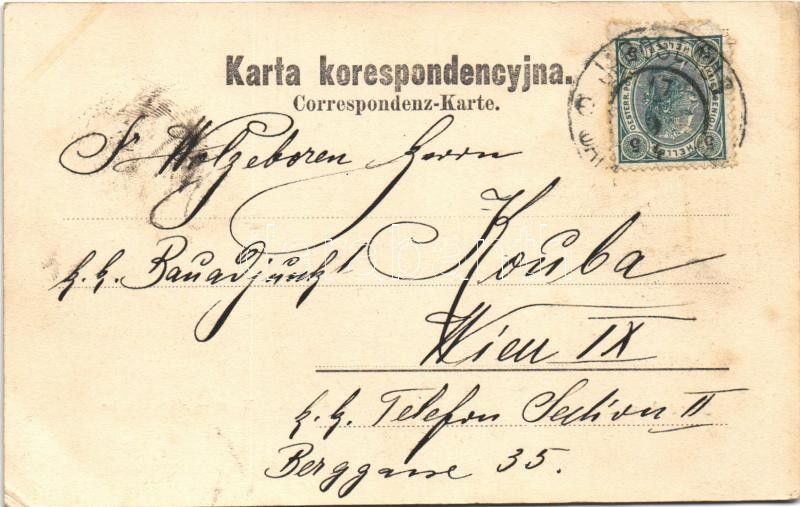 Karta korespondencyjna.
Correspondenz-Karte.
Sr Wolgeboren Herrn
k. k. Bauadjunkt Kouba
Wien IX
k. k. Telefon Section II
Berggasse 35.
5 HELLER 5